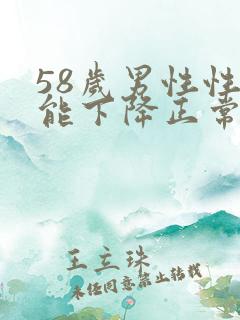 58歲男性性
能下降正常
王立珠
未经同意禁止转载